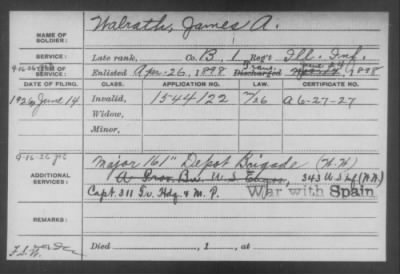 NAME OF SOLDIER: Walrath, James A.
SERVICE: Late rank, Co. B, 1 Reg't Ill. Inf.
9-16-26 TERM OF SERVICE: Enlisted Apr. 26, 1898 Discharged 1898
DATE OF FILING. CLASS. APPLICATION NO. LAW. CERTIFICATE NO.
1926 June 14 Invalid, 1544122 A 6-27-27
Widow,
Minor,
9-16-26
ADDITIONAL SERVICES: Major 161" Depot Brigade (W.W)
A Prov. Bn. U.S. Engrs, 343 U S Inf (W.W)
Capt. 311 Tr. Hdq & M. P. War with Spain
REMARKS:
Died , 1 , at